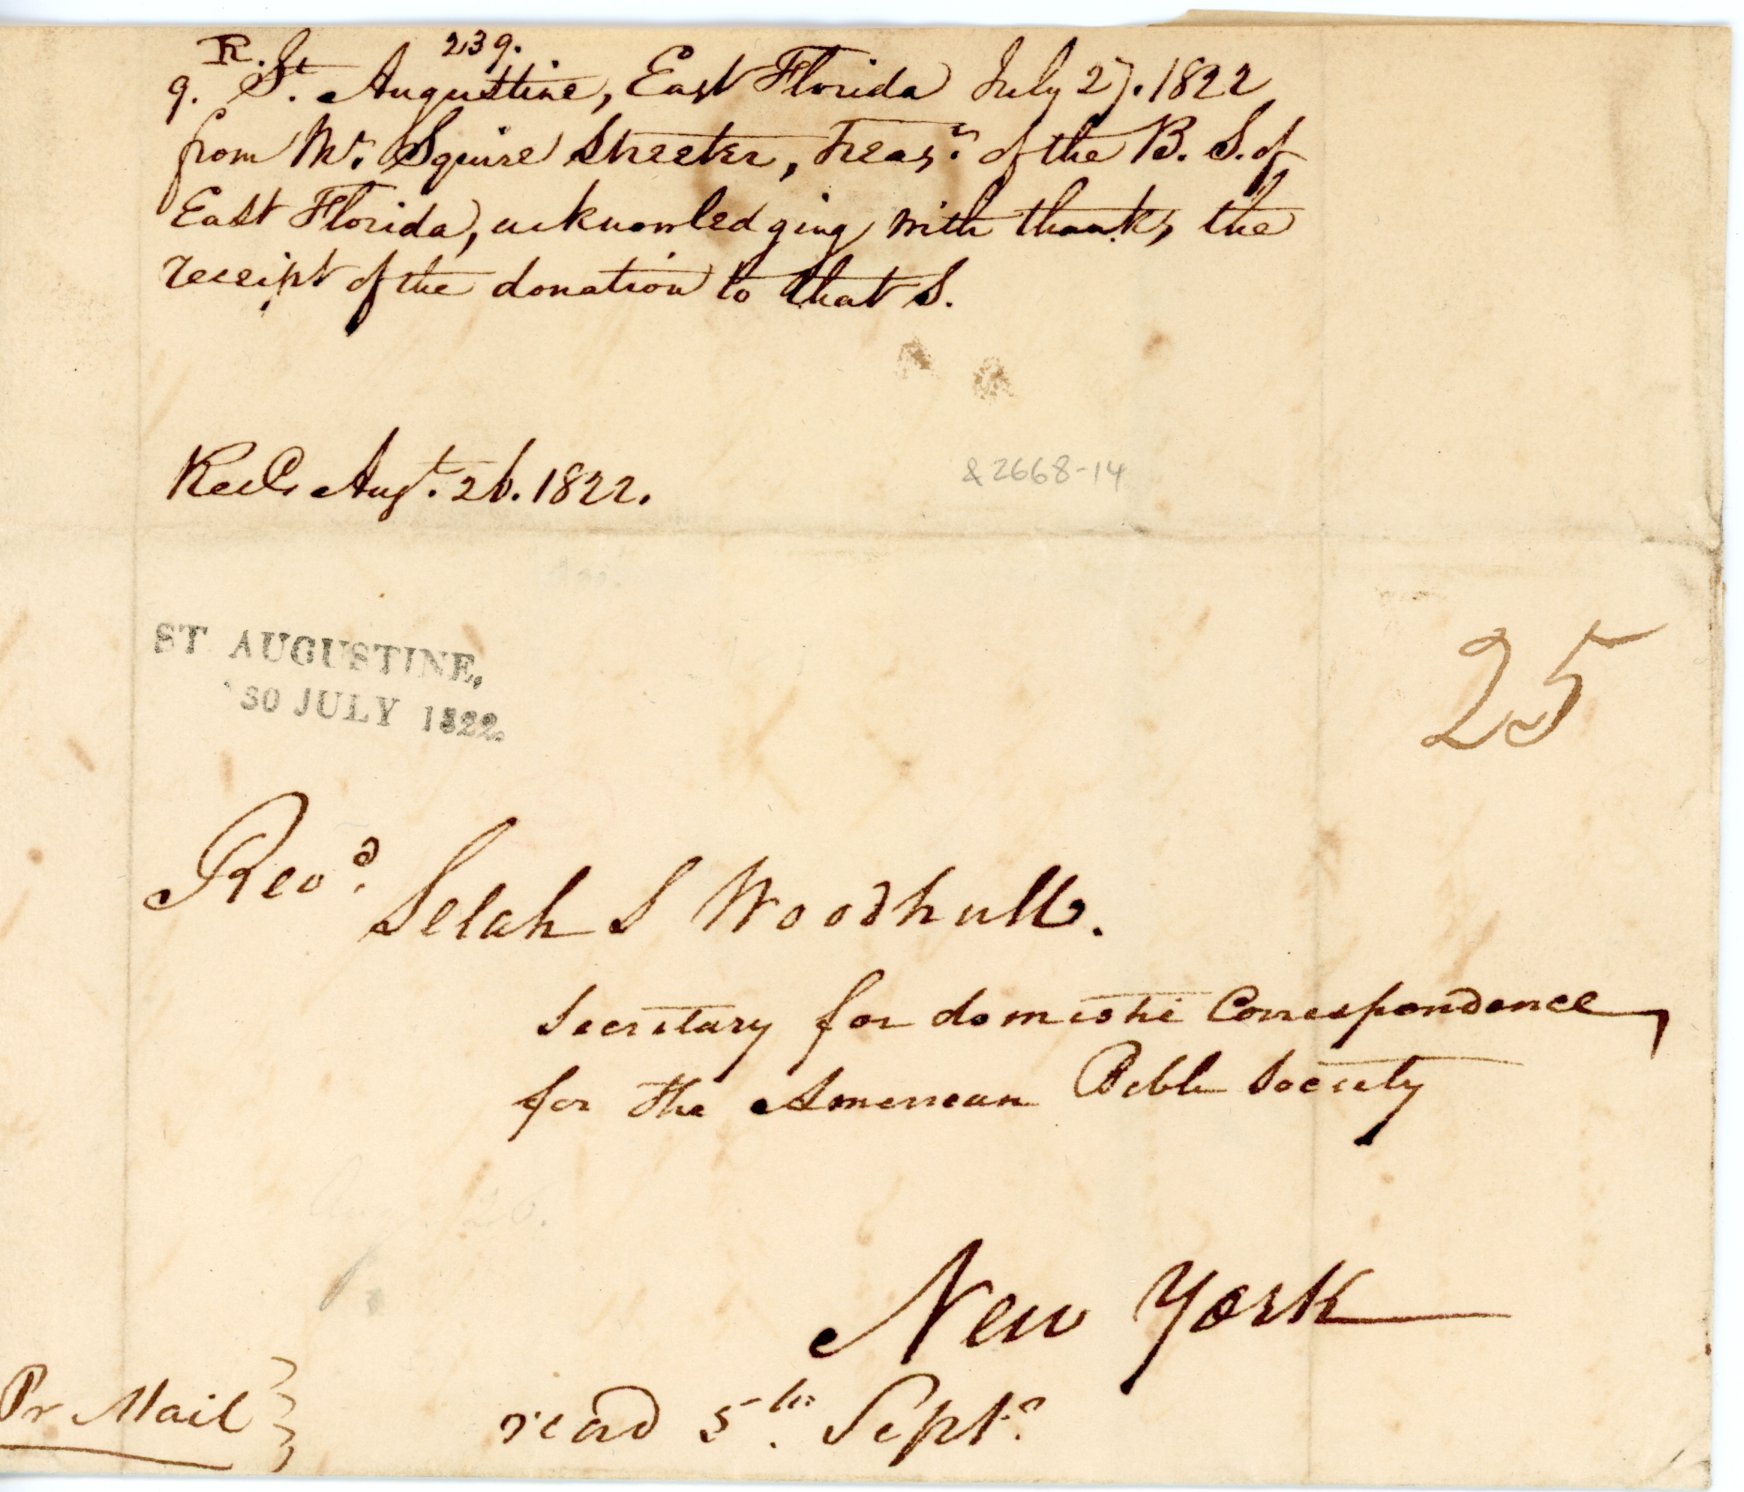 R. 239.
9. St. Augustine, East Florida July 27. 1822
from Mr. Squire Streeter, Treasr. of the B. S. of
East Florida, acknowledging with thanks, the
receipt of the donation to that S.
Recd. Augt. 26. 1822.
& 2668-14
ST AUGUSTINE,
30 JULY 1822.
25
Revd. Selah S Woodhull.
Secretary for domestic Correspondence,
for the American Bible Society
New York
Pr Mail
read 5th. Sept.